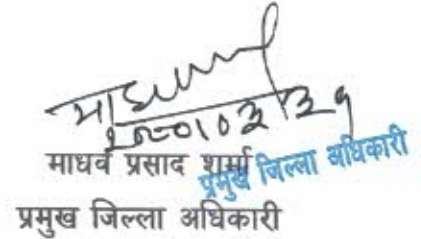 माधव प्रसाद शर्मा
प्रमुख जिल्ला अधिकारी
प्रमुख जिल्ला अधिकारी